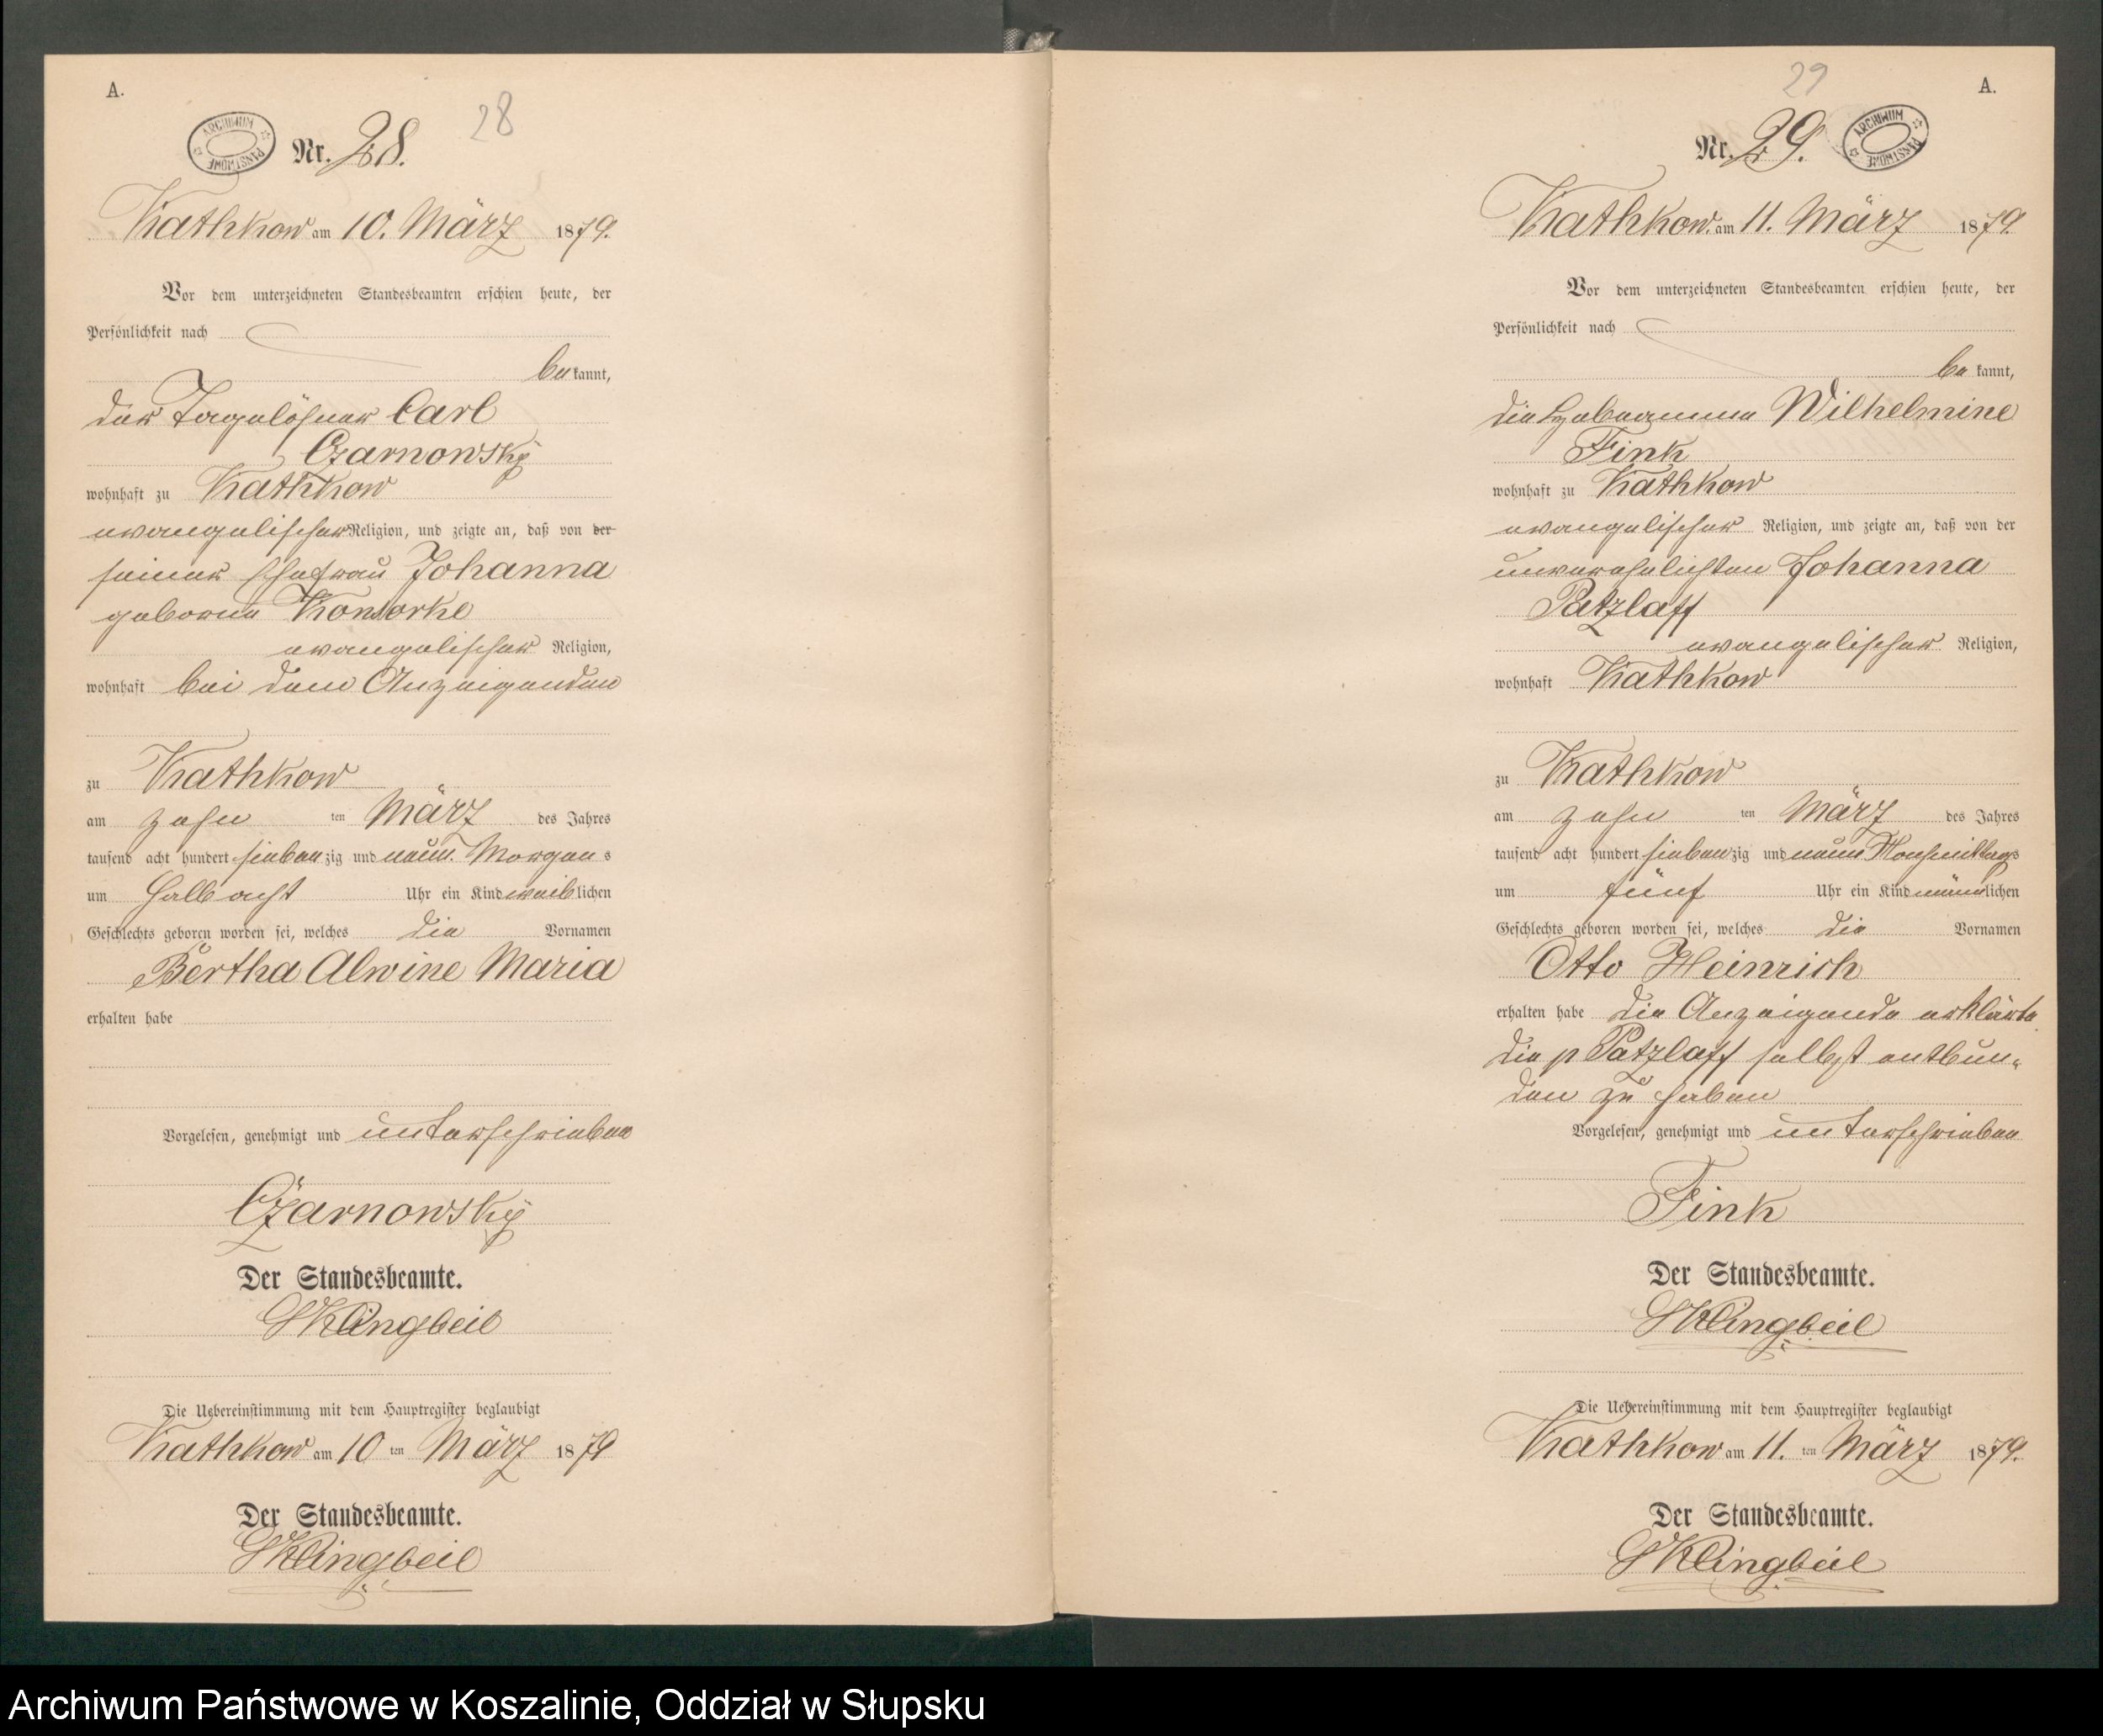 A.
ARCHIWUM PAŃSTWOWE
Nr. 28.
28
Kathkow am 10. März 1879.
Vor dem unterzeichneten Standesbeamten erschien heute, der
Persönlichkeit nach
bekannt,
der Tagelöhner Carl
Czarnowsky
wohnhaft zu Kathkow
evangelischer Religion, und zeigte an, daß von der
seiner Ehefrau Johanna
geborne
evangelischer Religion,
wohnhaft bei dem Anzeigenden
zu Kathkow
am zehn ten März des Jahres
tausend acht hundert siebenzig und neun Morgens
um halb acht Uhr ein Kind weiblichen
Geschlechts geboren worden sei, welches die Vornamen
Bertha Alwine Maria
erhalten habe
Vorgelesen, genehmigt und unterschrieben
Czarnowsky
Der Standesbeamte.
Klingbeil
Die Uebereinstimmung mit dem Hauptregister beglaubigt
Kathkow am 10 ten März 1879
Der Standesbeamte.
Klingbeil
29
A.
Nr. 29.
ARCHIWUM PAŃSTWOWE
Kathkow am 11. März 1879.
Vor dem unterzeichneten Standesbeamten erschien heute, der
Persönlichkeit nach
bekannt,
die Hebeamme Wilhelmine
Fink
wohnhaft zu Kathkow
evangelischer Religion, und zeigte an, daß von der
unverehelichten Johanna
Patzlaff
evangelischer Religion,
wohnhaft Kathkow
zu Kathkow
am zehn ten März des Jahres
tausend acht hundert siebenzig und neun Nachmittags
um fünf Uhr ein Kind männlichen
Geschlechts geboren worden sei, welches die Vornamen
Otto Heinrich
erhalten habe die Anzeigende erklärte
die p Patzlaff selbst entbun-
den zu haben
Vorgelesen, genehmigt und unterschrieben
Fink
Der Standesbeamte.
Klingbeil
Die Uebereinstimmung mit dem Hauptregister beglaubigt
Kathkow am 11. ten März 1879.
Der Standesbeamte.
Klingbeil
Archiwum Państwowe w Koszalinie, Oddział w Słupsku